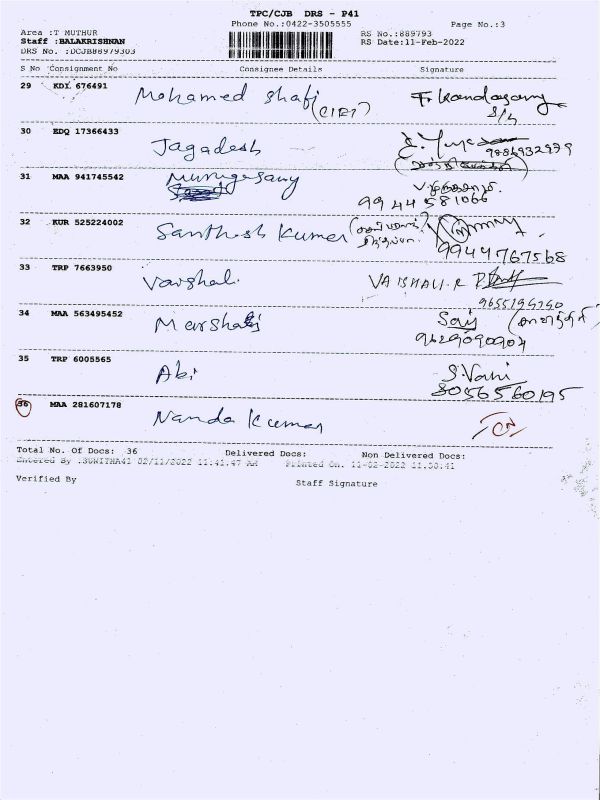 TPC/CJB DRS - P41
Phone No.:0422-3505555
Page No.:3
Area :T MUTHUR
RS No.:889793
Staff :BALAKRISHNAN
RS Date:11-Feb-2022
DRS No. :DCJB88979303
S No Consignment No Consignee Details Signature
29 KDI 676491 Mohamed Shafi F. Kandasamy
30 EDQ 17366433 Jagadesh
9886932979
31 MAA 941745542 Murugesamy
9944581066
32 KUR 525224002 Santhosh Kumar
9944767568
33 TRP 7663950 Vaishali VAISHALI.R
9655194340
34 MAA 563495452
9629090904
35 TRP 6005565 Abi S.Vani
8056560195
36 MAA 281607178 Nanda Kumar
Total No. Of Docs: 36 Delivered Docs: Non Delivered Docs:
Entered By :SUNITHA41 02/11/2022 11:41:47 AM Printed On. 11-02-2022 11:50:41
Verified By Staff Signature